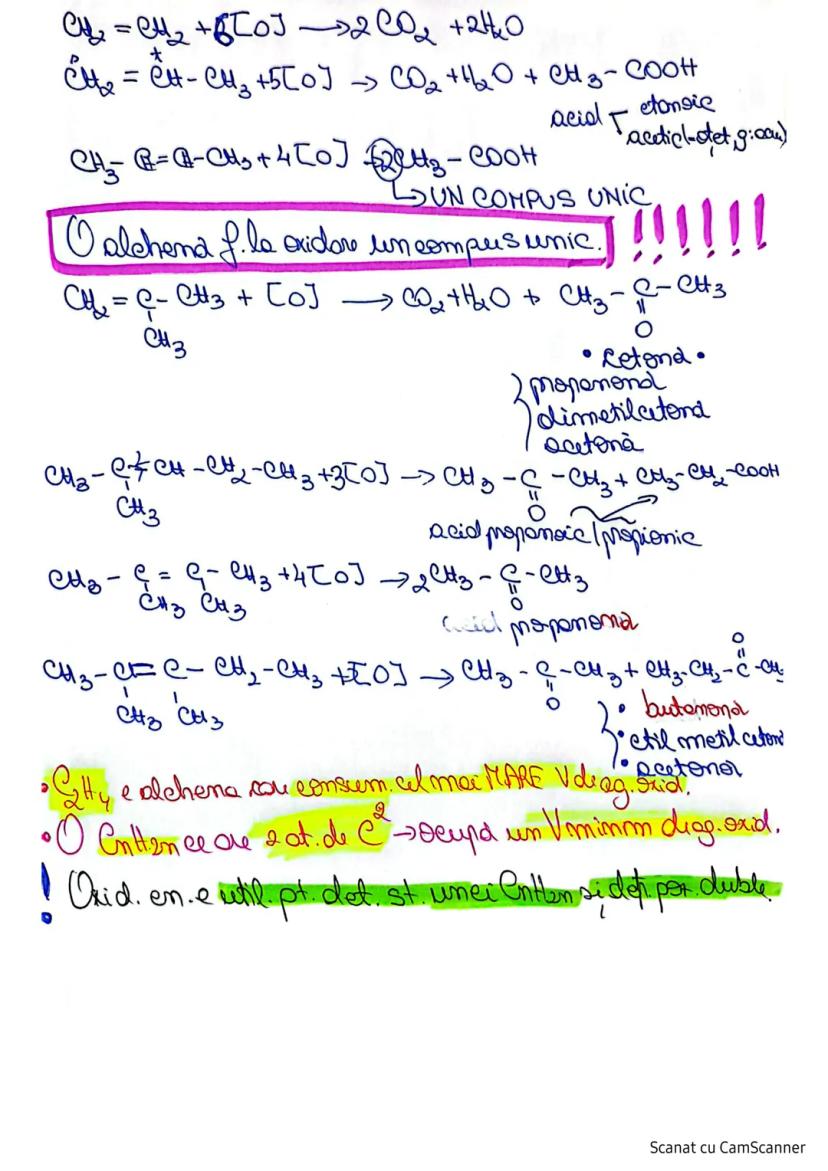 CH₂ = CH₂ + 6[O] → 2CO₂ + 2H₂O
CH₂ = CH - CH₃ + 5[O] → CO₂ + H₂O + CH₃ - COOH
acid etanoic
acetic(-oțet,
CH₃ - CH = CH - CH₃ + 4[O] → 2CH₃ - COOH
↳ UN COMPUS UNIC
O alchenă f. la oxidare un compus unic. !!!!!!
CH₂ = C - CH₃ + [O] → CO₂ + H₂O + CH₃ - C - CH₃
CH₃ O
• Cetonă •
propanonă
dimetilcetonă
acetonă
CH₃ - C = CH - CH₂ - CH₃ + 3[O] → CH₃ - C - CH₃ + CH₃ - CH₂ - COOH
CH₃ O
acid propanoic / propionic
CH₃ - C = C - CH₃ + 4[O] → 2CH₃ - C - CH₃
CH₃ CH₃ O
acid propanonă
O
CH₃ - C = C - CH₂ - CH₃ + [O] → CH₃ - C - CH₃ + CH₃ - CH₂ - C - CH₃
CH₃ CH₃ O
• butanonă
• etil metil cetonă
• acetonă
• C₂H₄ e alchena cu consum. cel mai MARE V de ag. oxid.
• O CnH2n ce are 2 at. de C² → ocupă un V minim de ag. oxid.
! Oxid. en. e util. pt. det. st. unei CnH2n și det. poz. duble.
Scanat cu CamScanner